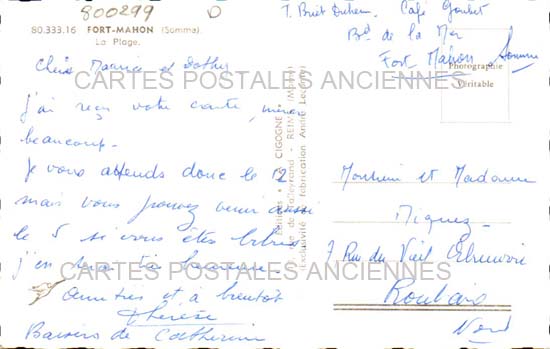 800299
80.333.16 FORT-MAHON (Somme).
La Plage.
T. Café
Bd de la Mer
Fort Mahon Somme
Photographie
Véritable
CARTES POSTALES ANCIENNES
j'ai reçu votre carte, merci
beaucoup.
Je vous attends donc le 12
mais vous pouvez venir aussi
le 5 si vous êtes libres
j'en
Amitiés et à bientôt
Thérèse
Baisers de Catherine
CARTES POSTALES ANCIENNES
CIGOGNE
de Talleyrand - REIMS (Marne)
(Exclusivité de fabrication André
Monsieur et Madame
7 Rue du Vieil Abreuvoir
Roubaix
Nord